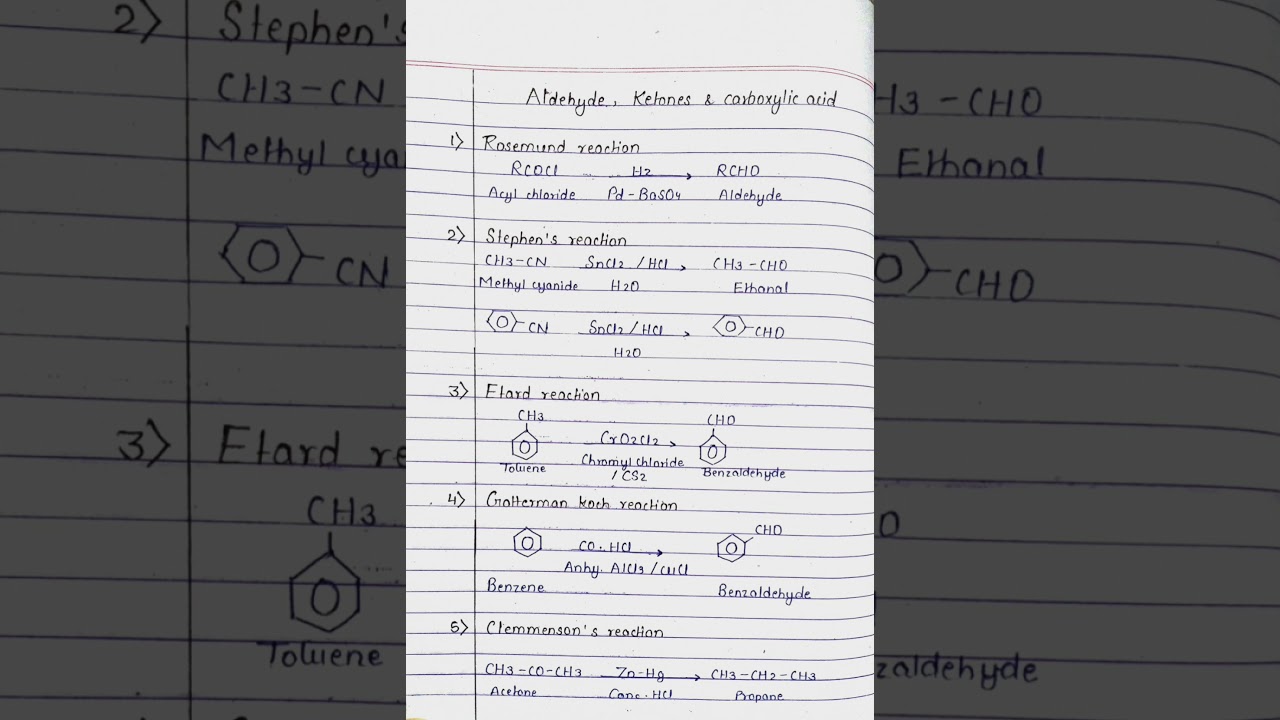 Aldehyde, Ketones & carboxylic acid
1) Rosemund reaction
RCOCl H2 RCHO
Acyl chloride Pd-BaSO4 Aldehyde
2) Stephen's reaction
CH3-CN SnCl2/HCl CH3-CHO
Methyl cyanide H2O Ethanal
CN SnCl2/HCl CHO
H2O
3) Etard reaction
CH3 CHO
CrO2Cl2
Toluene Chromyl chloride Benzaldehyde
/CS2
4) Gatterman koch reaction
CHO
CO.HCl
Anhy. AlCl3/CuCl
Benzene Benzaldehyde
5) Clemmenson's reaction
CH3-CO-CH3 Zn-Hg CH3-CH2-CH3
Acetone Conc.HCl Propane
2) Stephen's
CH3-CN
Methyl cya
CN
3) Etard re
CH3
Toluene
H3-CHO
Ethanal
CHO
O
zaldehyde